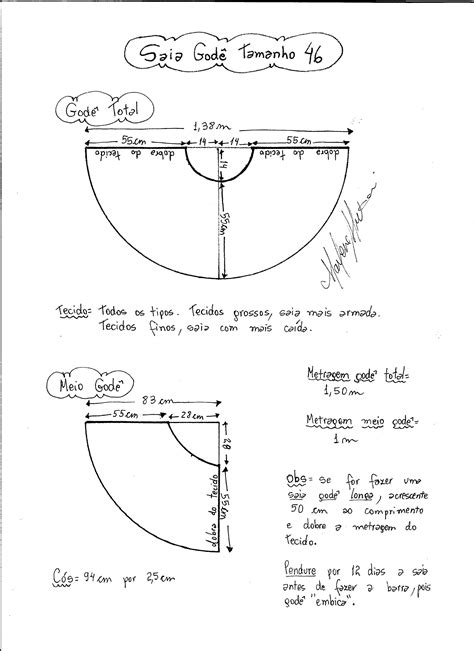 Saia Godê Tamanho 46
Godê Total
1,38 m
55 cm 14 14 55 cm
dobra do tecido
dobra do tecido
14
55 cm
Tecido= Todos os tipos. Tecidos grossos, saia mais armada.
Tecidos finos, saia com mais caída.
Meio Godê
83 cm
55 cm 28 cm
28
55 cm
dobra do tecido
Cós= 94 cm por 25 cm
Metragem godê total=
1,50 m
Metragem meio godê=
1 m
Obs= se for fazer uma
saia godê longa, acrescente
50 cm ao comprimento
e dobre a metragem do
tecido.
Pendure por 12 dias a saia
antes de fazer a barra, pois
godê "embica".